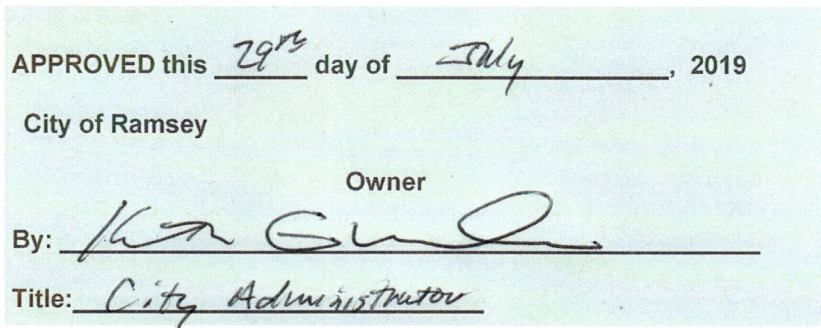 APPROVED this 29th day of July, 2019
City of Ramsey
Owner
By:
Title: City Administrator